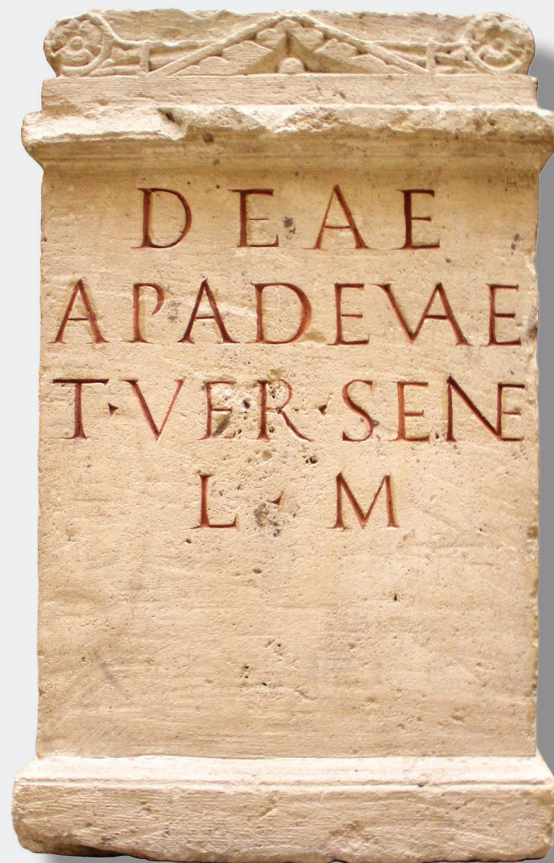 DEAE
APADEVAE
T·VER·SENE
L·M